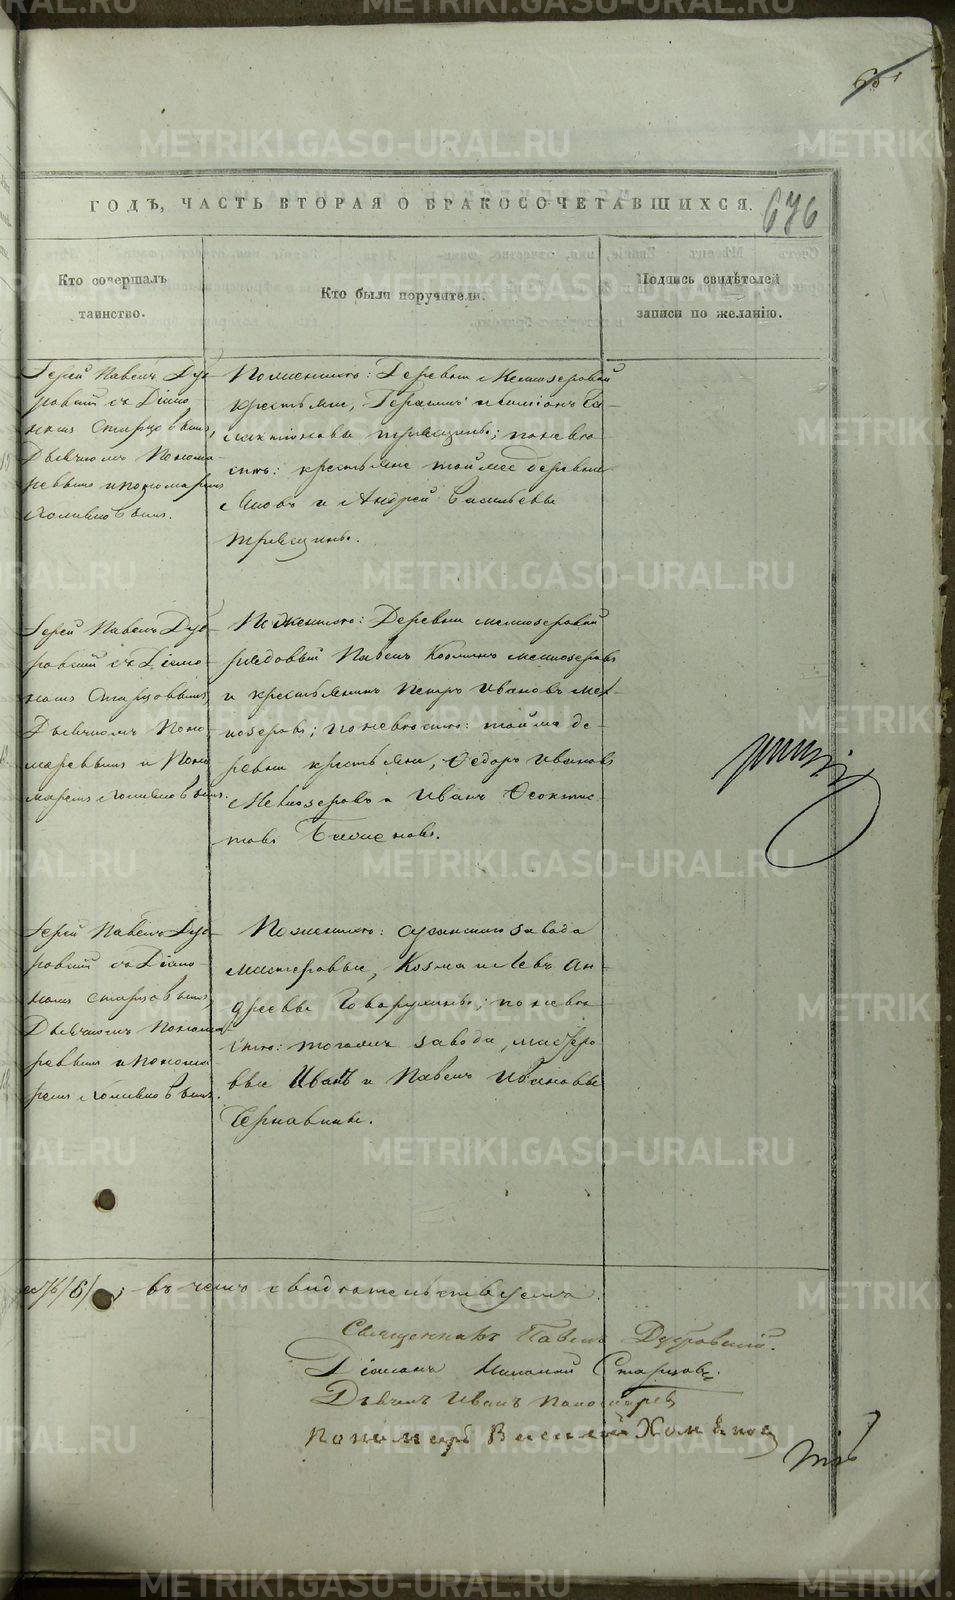 651
ГОДЪ, ЧАСТЬ ВТОРАЯ О БРАКОСОЧЕТАВШИХСЯ.
676
Кто совершалъ
таинство.
Кто были поручители.
Подпись свидѣтелей
записи по желанію.
Іерей Павелъ Дуб-
ровскій съ Діако-
номъ Старцовымъ,
Дьячкомъ Понома-
ревымъ и пономаремъ
Хомяковымъ.
По женихѣ: Деревни Мелкозеровой
крестьяне, Герасимъ и
; по невѣ-
стѣ: крестьяне той же деревни
Яковъ и Андрей Васильевы
Іерей Павелъ Дуб-
ровскій съ Діако-
номъ Старцовымъ,
Дьячкомъ Поно-
маревымъ и Поно-
маремъ Хомяковымъ.
По женихѣ: Деревни Мелкозеровой
рядовый Павелъ Козминъ Мелкозеровъ
и крестьянинъ Петръ Ивановъ Мел-
козеровъ; по невѣстѣ: той же де-
ревни крестьяне, Ѳедоръ Ивановъ
Мелкозеровъ и Иванъ Ѳеоктис-
товъ
Іерей Павелъ Дуб-
ровскій съ Діако-
номъ Старцовымъ,
Дьячкомъ Понома-
ревымъ и понома-
ремъ Хомяковымъ.
По женихѣ: завода
мастеровые, Козма и Левъ Ан-
дреевы Говорухины; по невѣ-
стѣ: того же завода, мастеро-
вые Иванъ и Павелъ Ивановы
Чернавины.
въ чемъ и свидѣтельствуемъ.
Священникъ Павелъ Дубровскій.
Діаконъ Николай Старцовъ.
Дьячекъ Иванъ Пономаревъ
Пономарь Василій Хомяковъ
METRIKI.GASO-URAL.RU